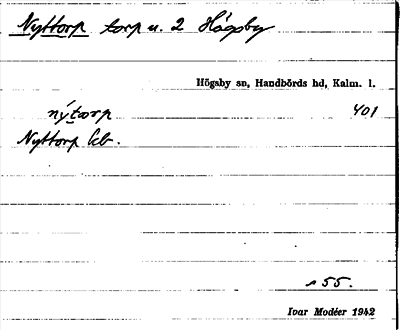 Nyttorp torp u. 2 Högsby
Högsby sn, Handbörds hd, Kalm. l.
nýtårp 401
Nyttorp kb.
s 55.
Ivar Modéer 1942